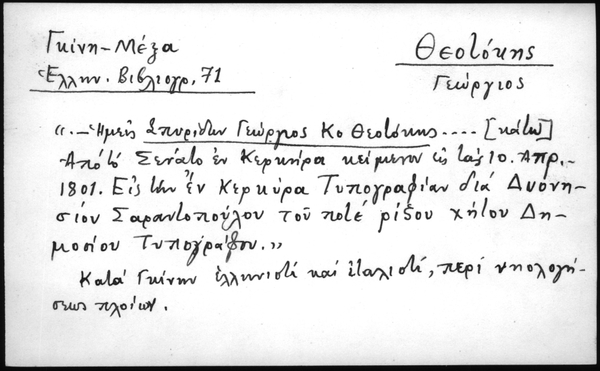 Γκίνη-Μέξα
Ελλην. Βιβλιογρ. 71
Θεοτόκης
Γεώργιος
«.-Ημείς Σπυρίδων Γεώργιος Κο Θεοτόκης .... [κάτω]
Από το Σενάτο εν Κερκύρα κείμενον εις τας 10. Απρ.
1801. Εις την εν Κερκύρα Τυπογραφίαν διά Διονυ-
σίου Σαραντοπούλου του ποτέ ρίζου χήτου Δη-
μοσίου Τυπογράφου.»
Κατά Γκίνην ελληνιστί και ιταλιστί, περί νηολογή-
σεως πλοίων.